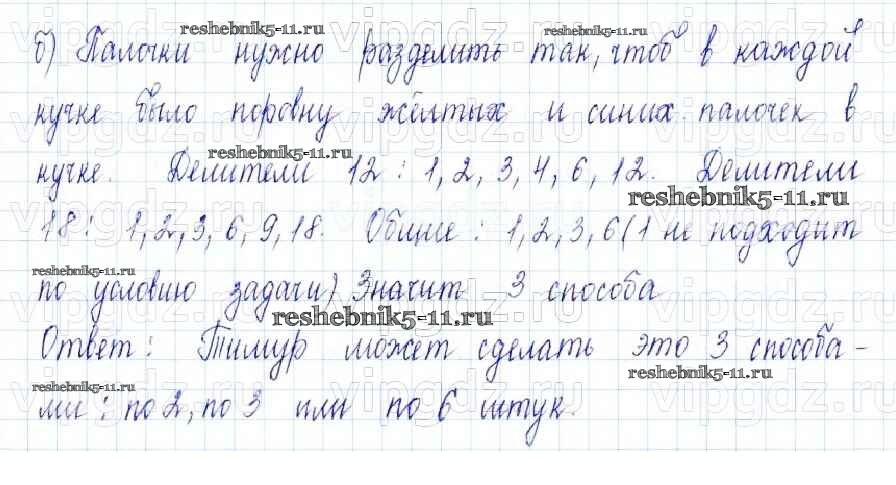 reshebnik5-11.ru reshebnik5-11.ru
б) Палочки нужно разделить так, чтоб в каждой
кучке было поровну жёлтых и синих палочек в
reshebnik5-11.ru
кучке. Делители 12 : 1, 2, 3, 4, 6, 12. Делители
reshebnik5-11.ru
18: 1, 2, 3, 6, 9, 18. Общие : 1, 2, 3, 6 (1 не подходит
reshebnik5-11.ru
по условию задачи) Значит 3 способа
reshebnik5-11.ru
Ответ : Тимур может сделать это 3 способа-
reshebnik5-11.ru reshebnik5-11.ru
ми : по 2, по 3 или по 6 штук.